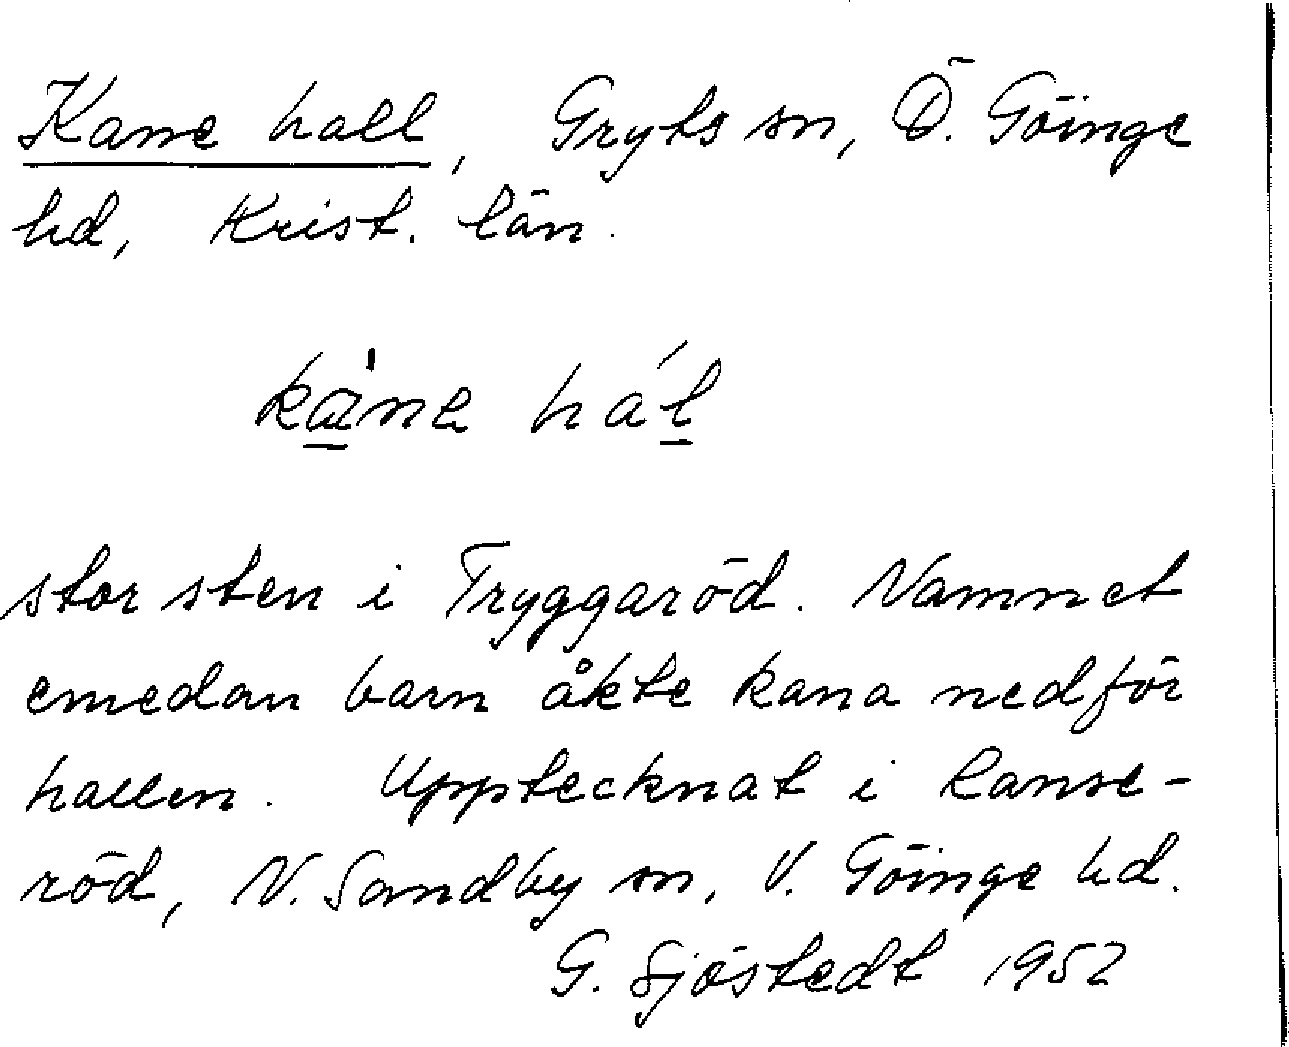 Kane hall, Gryts sn, Ö. Göinge
hd, Krist. län.
ka̱ne háḻ
stor sten i Tryggaröd. Namnet
emedan barn åkte kana nedför
hallen. Upptecknat i Ranse-
röd, N. Sandby sn, V. Göinge hd.
G. Sjöstedt 1952